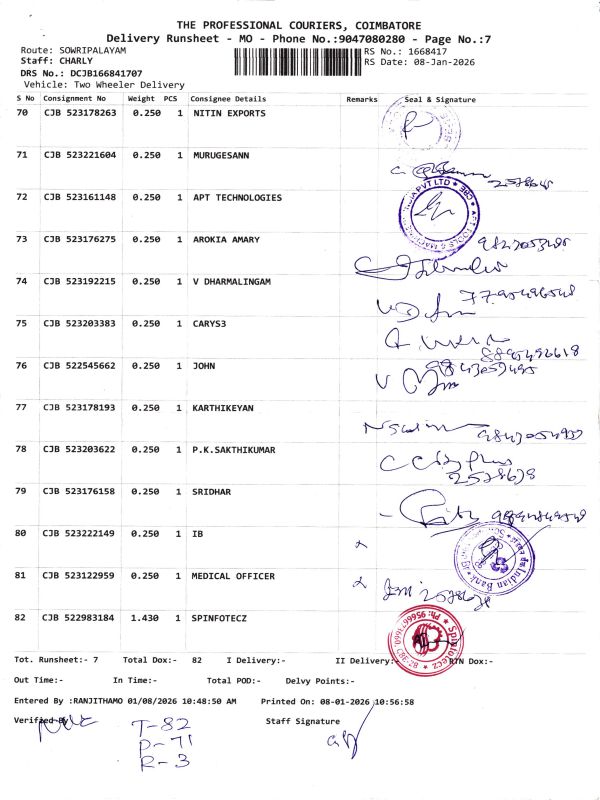 THE PROFESSIONAL COURIERS, COIMBATORE
Delivery Runsheet - MO - Phone No.:9047080280 - Page No.:7
Route: SOWRIPALAYAM RS No.: 1668417
Staff: CHARLY RS Date: 08-Jan-2026
DRS No.: DCJB166841707
Vehicle: Two Wheeler Delivery
S No Consignment No Weight PCS Consignee Details Remarks Seal & Signature
70 CJB 523178263 0.250 1 NITIN EXPORTS
71 CJB 523221604 0.250 1 MURUGESANN
72 CJB 523161148 0.250 1 APT TECHNOLOGIES
73 CJB 523176275 0.250 1 AROKIA AMARY
74 CJB 523192215 0.250 1 V DHARMALINGAM
75 CJB 523203383 0.250 1 CARYS3
8895492618
76 CJB 522545662 0.250 1 JOHN
77 CJB 523178193 0.250 1 KARTHIKEYAN
78 CJB 523203622 0.250 1 P.K.SAKTHIKUMAR
79 CJB 523176158 0.250 1 SRIDHAR
80 CJB 523222149 0.250 1 IB
Indian Bank
81 CJB 523122959 0.250 1 MEDICAL OFFICER
82 CJB 522983184 1.430 1 SPINFOTECZ
Spinfotecz
Tot. Runsheet:- 7 Total Dox:- 82 I Delivery:- II Delivery:- RTN Dox:-
Out Time:- In Time:- Total POD:- Delvy Points:-
Entered By :RANJITHAMO 01/08/2026 10:48:50 AM Printed On: 08-01-2026 10:56:58
Verified By Staff Signature
T-82
D-71
R-3